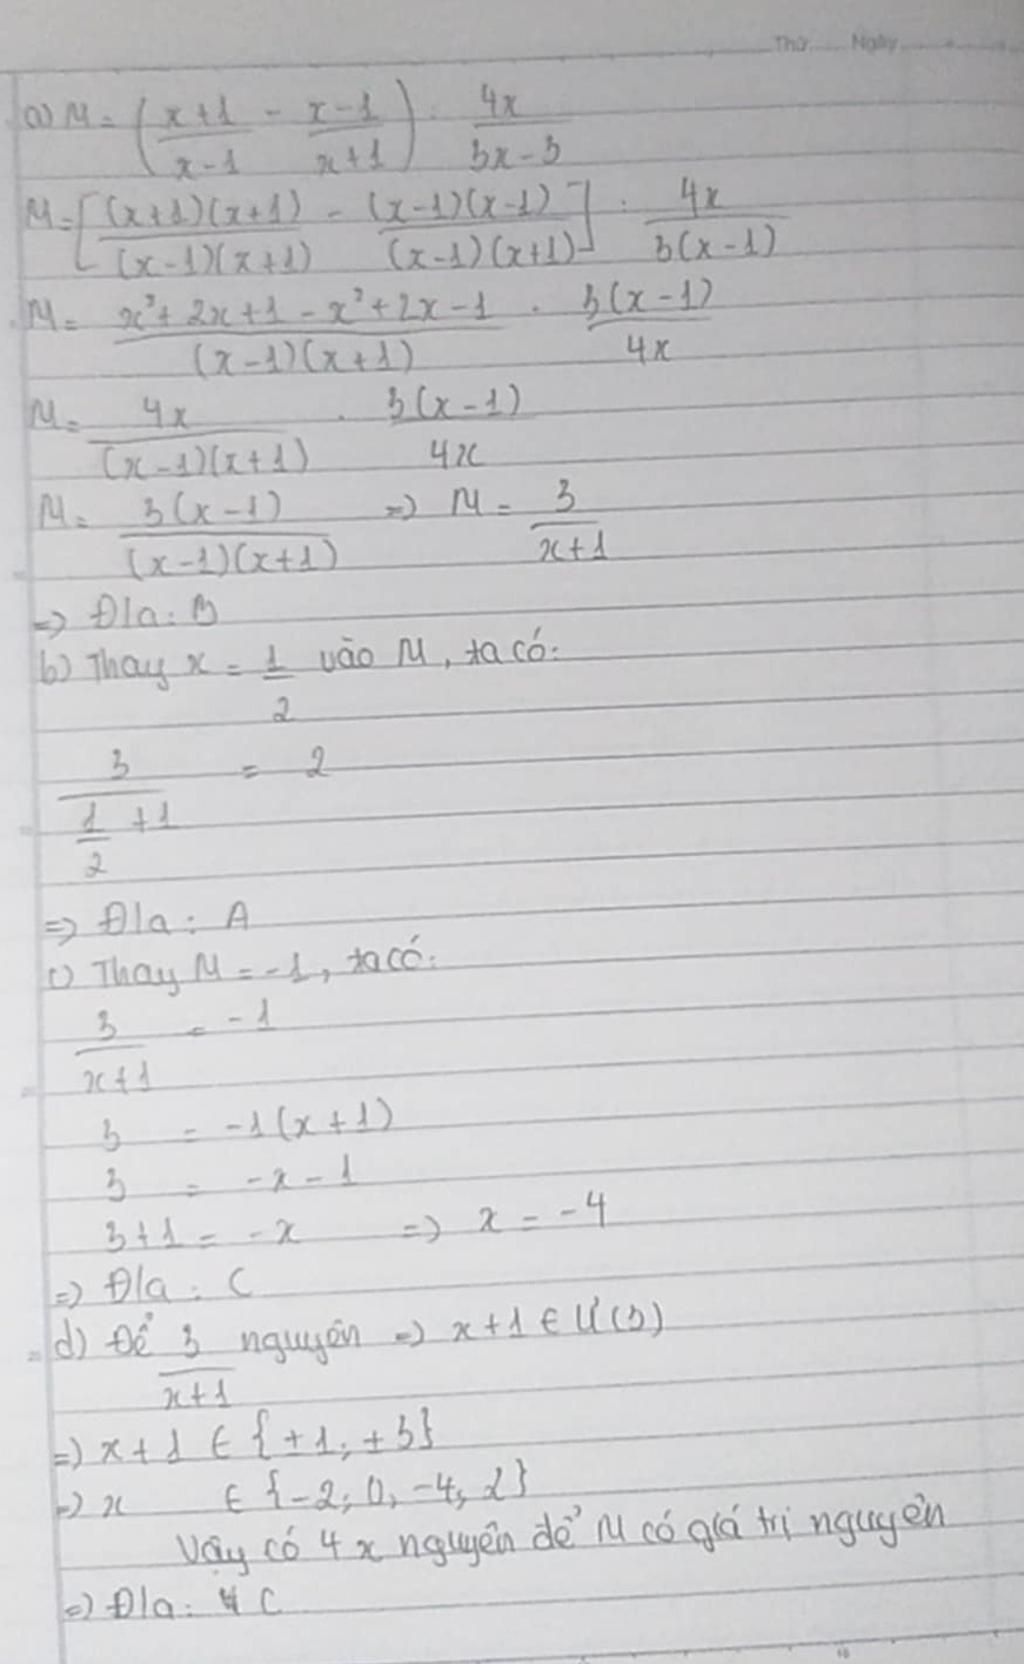 Thứ Ngày
a) M = (x+1/x-1 - x-1/x+1) : 4x/3x-3
M = [(x+1)(x+1)/(x-1)(x+1) - (x-1)(x-1)/(x-1)(x+1)] : 4x/3(x-1)
M = x²+2x+1-x²+2x-1/(x-1)(x+1) . 3(x-1)/4x
M = 4x/(x-1)(x+1) . 3(x-1)/4x
M = 3(x-1)/(x-1)(x+1) => M = 3/x+1
=> Đ/a: B
b) Thay x = 1/2 vào M, ta có:
3/(1/2 + 1) = 2
=> Đ/a: A
c) Thay M = -1, ta có:
3/x+1 = -1
3 = -1(x+1)
3 = -x-1
3+1 = -x => x = -4
=> Đ/a: C
d) Để 3/x+1 nguyên => x+1 ∈ Ư(3)
=> x+1 ∈ {±1; ±3}
=> x ∈ {-2; 0; -4; 2}
Vậy có 4 x nguyên để M có giá trị nguyên
=> Đ/a: C